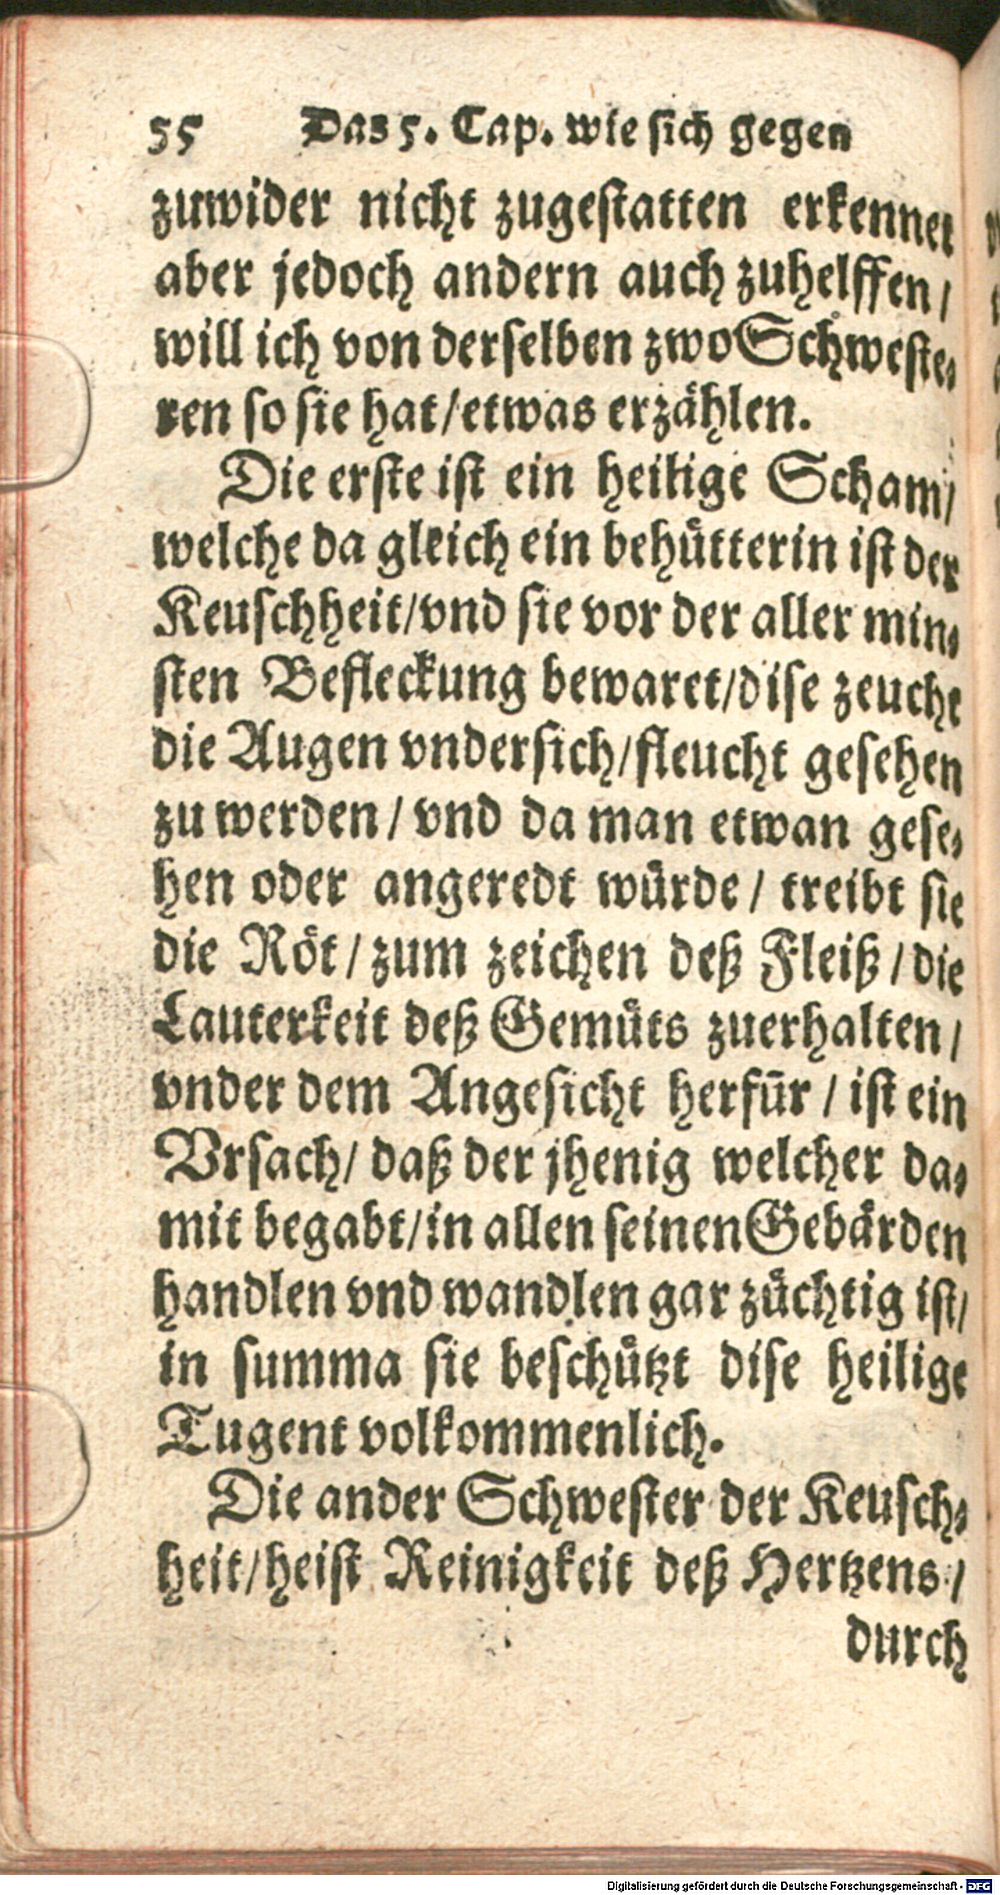 55 Das 5. Cap. wie sich gegen
zuwider nicht zugestatten erkennet
aber jedoch andern auch zuhelffen /
will ich von derselben zwo Schweste⸗
ren so sie hat / etwas erzählen.
Die erste ist ein heilige Scham /
welche da gleich ein behütterin ist der
Keuschheit / vnd sie vor der aller min⸗
sten Befleckung bewaret / dise zeucht
die Augen vndersich / fleucht gesehen
zu werden / vnd da man etwan gese⸗
hen oder angeredt würde / treibt sie
die Röt / zum zeichen deß Fleiß / die
Lauterkeit deß Gemüts zuerhalten /
vnder dem Angesicht herfür / ist ein
Vrsach / daß der jhenig welcher da⸗
mit begabt / in allen seinen Gebärden
handlen vnd wandlen gar züchtig ist /
in summa sie beschützt dise heilige
Tugent volkommenlich.
Die ander Schwester der Keusch⸗
heit / heist Reinigkeit deß Hertzens /
durch
Digitalisierung gefördert durch die Deutsche Forschungsgemeinschaft - DFG